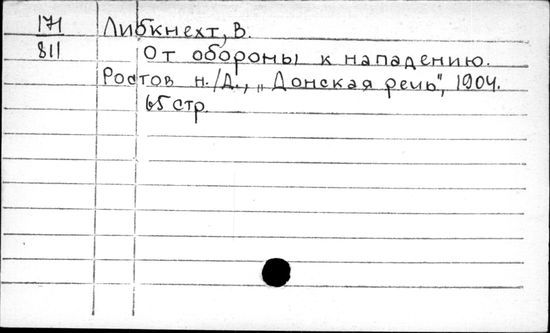 171
811
Либкнехт, В.
От обороны к нападению.
Ростов н./Д., „Донская речь", 1904.
65 стр.